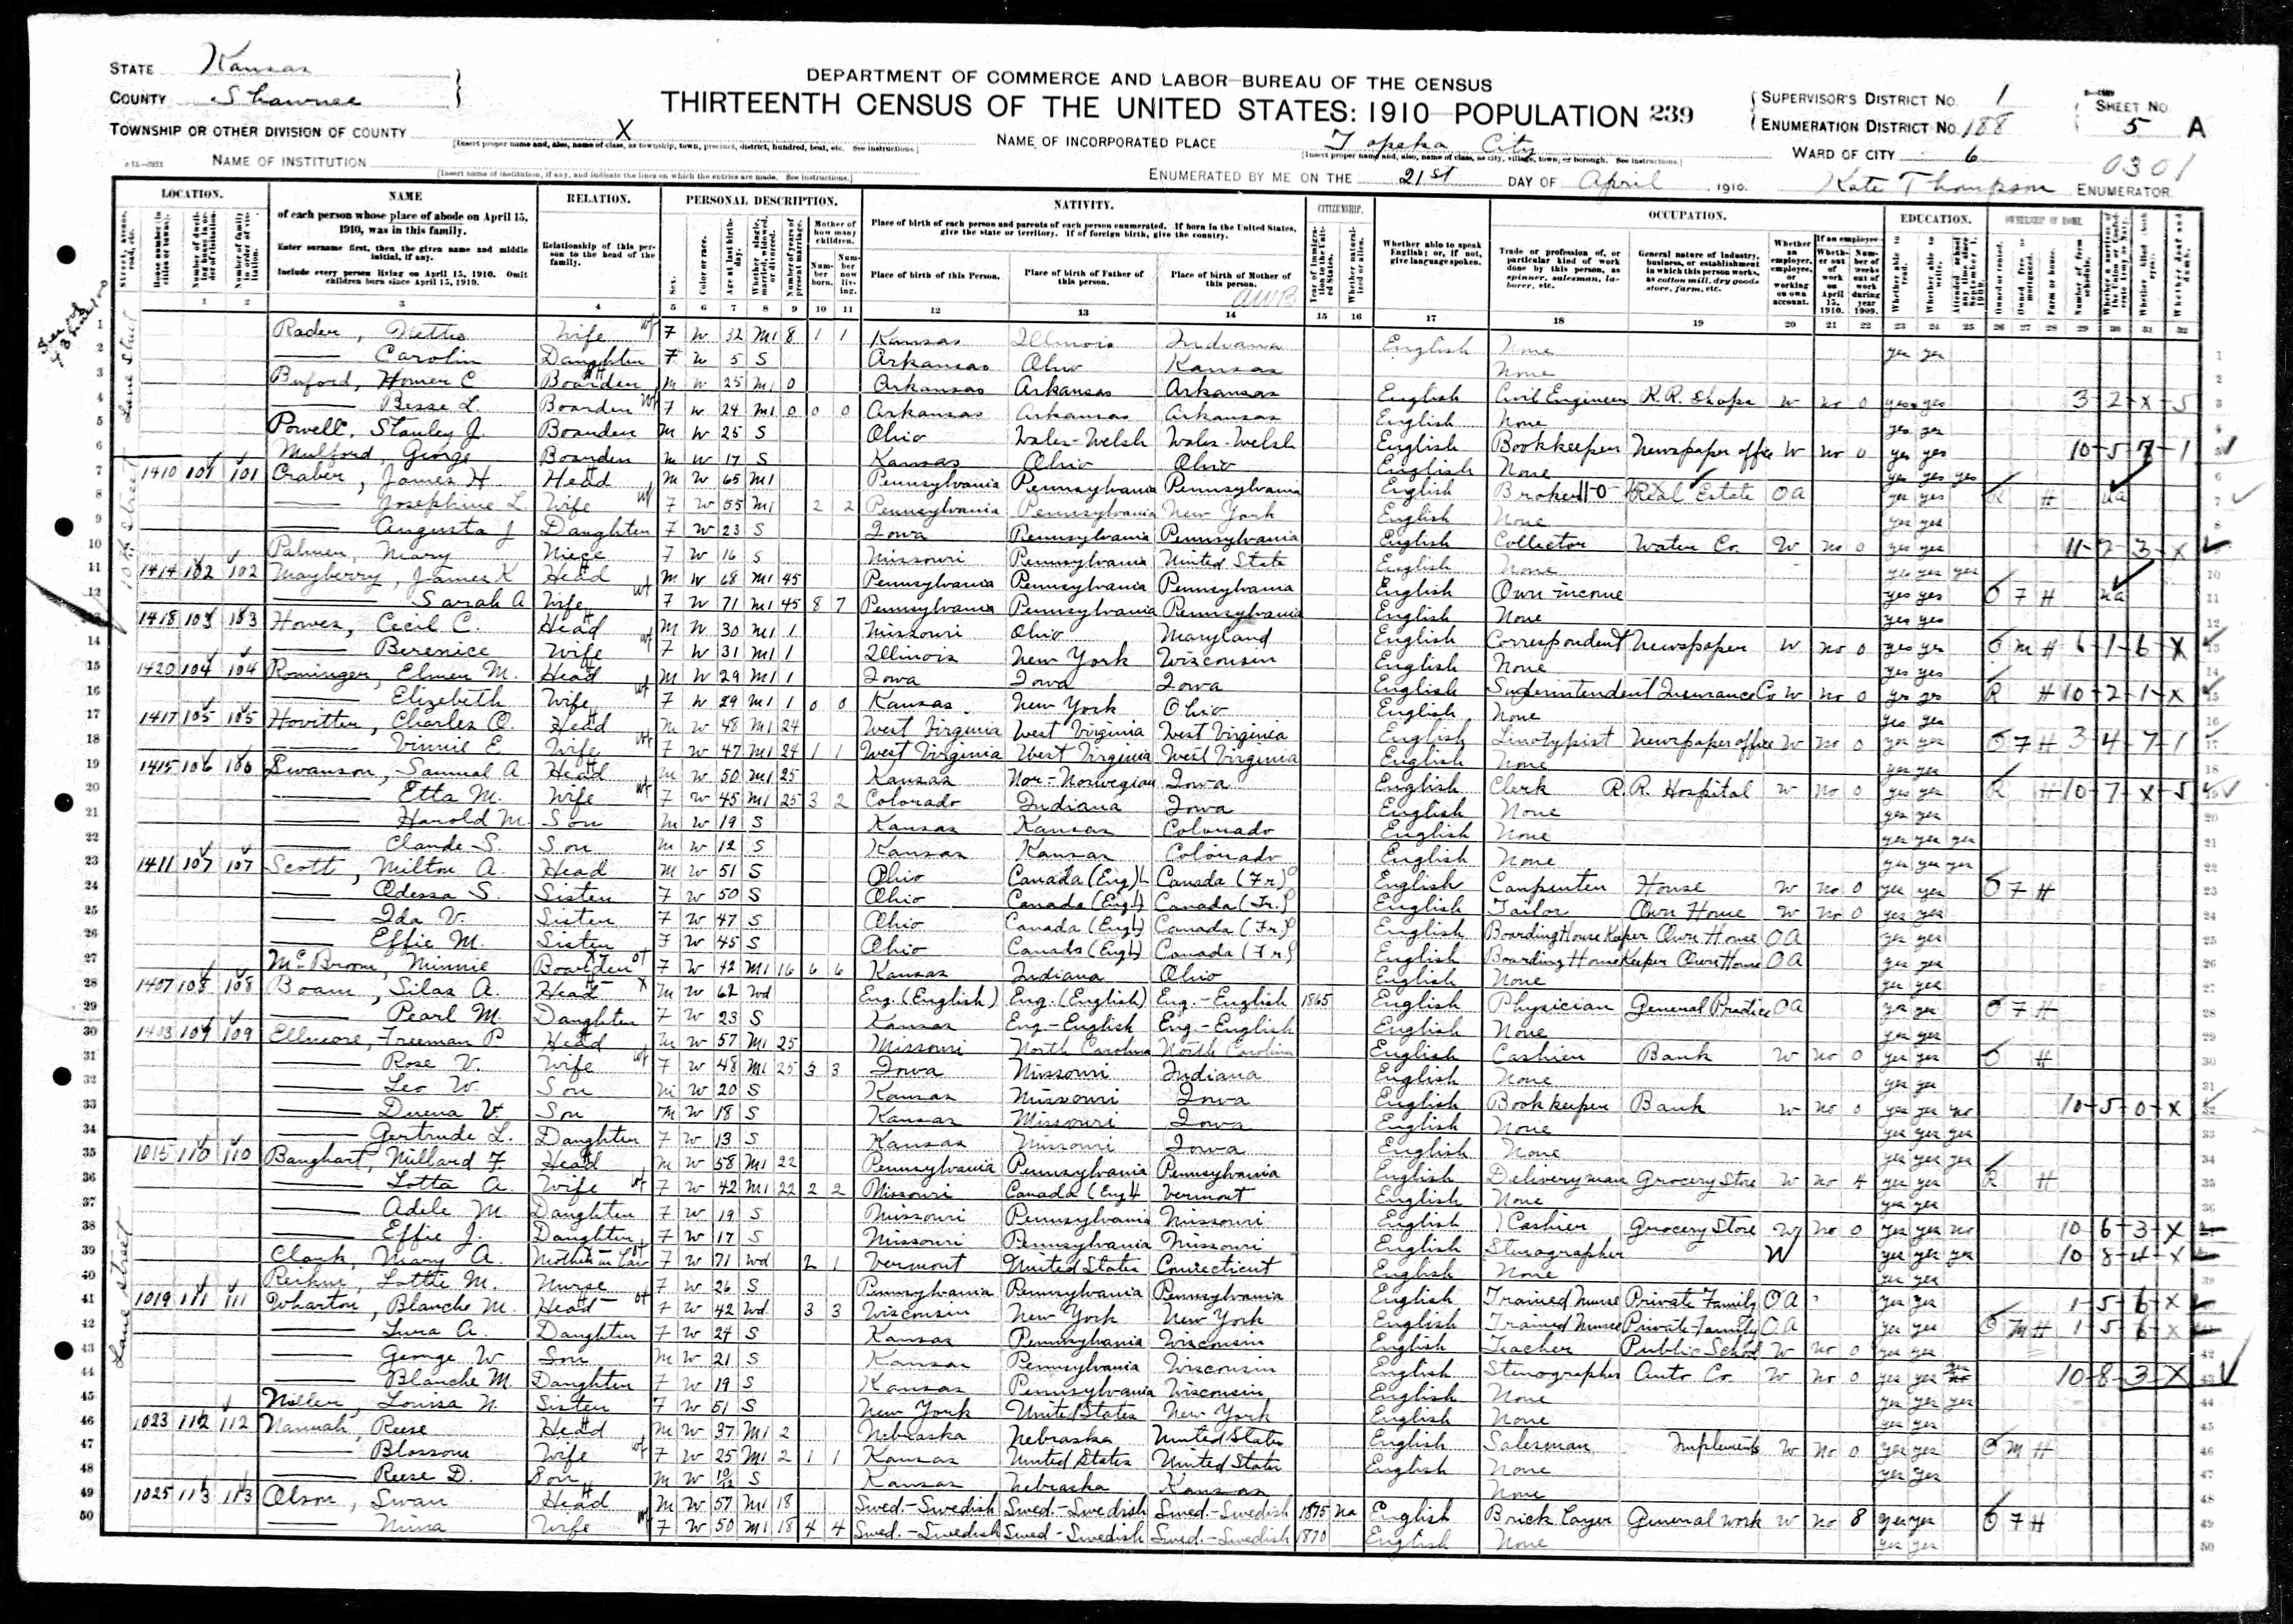 STATE Kansas
COUNTY Shawnee
TOWNSHIP OR OTHER DIVISION OF COUNTY X
[Insert proper name and, also, name of class, as township, town, precinct, district, hundred, beat, etc. See instructions.]
NAME OF INSTITUTION
[Insert name of institution, if any, and indicate the lines on which the entries are made. See instructions.]
DEPARTMENT OF COMMERCE AND LABOR—BUREAU OF THE CENSUS
THIRTEENTH CENSUS OF THE UNITED STATES: 1910—POPULATION 239
NAME OF INCORPORATED PLACE Topeka City
[Insert proper name and, also, name of class, as city, village, town, or borough. See instructions.]
ENUMERATED BY ME ON THE 21st DAY OF April, 1910.
SUPERVISOR'S DISTRICT NO. 1
ENUMERATION DISTRICT NO. 188
SHEET NO. 5 A
WARD OF CITY 6
0301
Kate Thompson ENUMERATOR.
LOCATION. NAME RELATION. PERSONAL DESCRIPTION. NATIVITY. CITIZENSHIP. OCCUPATION. EDUCATION. OWNERSHIP OF HOME.
of each person whose place of abode on April 15, 1910, was in this family.
Enter surname first, then the given name and middle initial, if any.
Include every person living on April 15, 1910. Omit children born since April 15, 1910.
Relationship of this person to the head of the family.
Mother of how many children.
Place of birth of each person and parents of each person enumerated. If born in the United States, give the state or territory. If of foreign birth, give the country.
Place of birth of this Person. Place of birth of Father of this person. Place of birth of Mother of this person.
Whether able to speak English; or, if not, give language spoken.
Trade or profession of, or particular kind of work done by this person, as spinner, salesman, laborer, etc.
General nature of industry, business, or establishment in which this person works, as cotton mill, dry goods store, farm, etc.
1 Rader, Nettie Wife F W 32 M1 8 1 1 Kansas Illinois Indiana English None yes yes
2 Carolin Daughter F W 5 S Arkansas Ohio Kansas None
3 Buford, Homer C Boarder M W 25 M1 0 Arkansas Arkansas Arkansas English Civil Engineer R.R. Shops W no 0 yes yes 3-2-X-5
4 Besse L. Boarder F W 24 M1 0 0 0 Arkansas Arkansas Arkansas English None yes yes
5 Powell, Stanley J. Boarder M W 25 S Ohio Wales-Welsh Wales-Welsh English Bookkeeper Newspaper office W no 0 yes yes 10-5-7-1
6 Mulford, George Boarder M W 17 S Kansas Ohio Ohio English None yes yes yes
7 1410 101 101 Craber, James H Head M W 65 M1 Pennsylvania Pennsylvania Pennsylvania English Broker Real Estate OA yes yes R H UA
8 Josephine L Wife F W 55 M1 2 2 Pennsylvania Pennsylvania New York English None yes yes
9 Augusta J Daughter F W 23 S Iowa Pennsylvania Pennsylvania English Collector Water Co. W no 0 yes yes 11-2-3-X
10 Palmer, Mary Niece F W 16 S Missouri Pennsylvania United State English None yes yes yes
11 1414 102 102 Mayberry, James K Head M W 68 M1 45 Pennsylvania Pennsylvania Pennsylvania English Own income yes yes O F H UA
12 Sarah A Wife F W 71 M1 45 8 7 Pennsylvania Pennsylvania Pennsylvania English None yes yes
13 1418 103 103 Howes, Cecil C. Head M W 30 M1 1 Missouri Ohio Maryland English Correspondent Newspaper W no 0 yes yes O M H 6-1-6-X
14 Berenice Wife F W 31 M1 1 Illinois New York Wisconsin English None yes yes
15 1420 104 104 Rominger, Elmer M. Head M W 29 M1 1 Iowa Iowa Iowa English Superintendent Insurance Co W no 0 yes yes R H 10-2-1-X
16 Elizebeth Wife F W 29 M1 1 0 0 Kansas New York Ohio English None yes yes
17 1417 105 105 Hovitter, Charles O. Head M W 48 M1 24 West Virginia West Virginia West Virginia English Linotypist Newspaper office W no 0 yes yes O F H 3-4-7-1
18 Vinnie E. Wife F W 47 M1 24 1 1 West Virginia West Virginia West Virginia English None yes yes
19 1415 106 106 Swanson, Samuel A Head M W 50 M1 25 Kansas Nor-Norwegian Iowa English Clerk R.R. Hospital W no 0 yes yes R H 10-7-X-5
20 Etta M. Wife F W 45 M1 25 3 2 Colorado Indiana Iowa English None yes yes
21 Harold M Son M W 19 S Kansas Kansas Colorado English None yes yes yes
22 Claude S. Son M W 12 S Kansas Kansas Colorado English None yes yes yes
23 1411 107 107 Scott, Milton A. Head M W 51 S Ohio Canada (Eng) Canada (Fr) English Carpenter House W no 0 yes yes O F H
24 Odessa S. Sister F W 50 S Ohio Canada (Eng) Canada (Fr.) English Tailor Own Home W no 0 yes yes
25 Ida V. Sister F W 47 S Ohio Canada (Eng) Canada (Fr) English Boarding House Keeper Own House OA yes yes
26 Effie M. Sister F W 45 S Ohio Canada (Eng) Canada (Fr) English Boarding House Keeper Own House OA yes yes
27 McBroom, Minnie Boarder F W 42 M1 16 6 6 Kansas Indiana Ohio English None yes yes
28 1407 108 108 Boam, Silas A. Head M W 62 Wd Eng. (English) Eng. (English) Eng.-English 1865 English Physician General Practice OA yes yes O F H
29 Pearl M. Daughter F W 23 S Kansas Eng-English Eng-English English None yes yes
30 1403 109 109 Ellmore, Freeman P Head M W 57 M1 25 Missouri North Carolina North Carolina English Cashier Bank W no 0 yes yes O H
31 Rose V. Wife F W 48 M1 25 3 3 Iowa Missouri Indiana English None yes yes
32 Leo W. Son M W 20 S Kansas Missouri Iowa English Bookkeeper Bank W no 0 yes yes no 10-5-0-X
33 Son M W 18 S Kansas Missouri Iowa English None yes yes yes
34 Gertrude L. Daughter F W 13 S Kansas Missouri Iowa English None yes yes yes
35 1015 110 110 Banghart, Millard F Head M W 58 M1 22 Pennsylvania Pennsylvania Pennsylvania English Deliveryman Grocery Store W no 4 yes yes R H
36 Lotta A. Wife F W 42 M1 22 2 2 Missouri Canada (Eng) Vermont English None yes yes
37 Adele M Daughter F W 19 S Missouri Pennsylvania Missouri English Cashier Grocery Store W no 0 yes yes no 10-6-3-X
38 Effie J. Daughter F W 17 S Missouri Pennsylvania Missouri English Stenographer W yes yes yes 10-8-4-X
39 Clark, Mary A. Mother in Law F W 71 Wd 2 1 Vermont United States Connecticut English None yes yes
40 Lottie M. Nurse F W 26 S Pennsylvania Pennsylvania Pennsylvania English Trained Nurse Private Family OA yes yes 1-5-6-X
41 1019 111 111 Wharton, Blanche M. Head F W 42 Wd 3 3 Wisconsin New York New York English Trained Nurse Private Family OA yes yes O M H 1-5-6-X
42 Lura A. Daughter F W 24 S Kansas Pennsylvania Wisconsin English Teacher Public School W no 0 yes yes
43 George W Son M W 21 S Kansas Pennsylvania Wisconsin English Stenographer Auto Co. W no 0 yes yes 10-8-3-X
44 Blanche M. Daughter F W 19 S Kansas Pennsylvania Wisconsin English None yes yes yes
45 Miller, Louisa N. Sister F W 51 S New York United States New York English None yes yes
46 1023 112 112 Hannah, Reese Head M W 37 M1 2 Nebraska Nebraska United States English Salesman Implements W no 0 yes yes O M H
47 Blossom Wife F W 25 M1 2 1 1 Kansas United States United States English None yes yes
48 Reese D. Son M W 10/12 S Kansas Nebraska Kansas None
49 1025 113 113 Olson, Swan Head M W 57 M1 18 Swed.-Swedish Swed.-Swedish Swed.-Swedish 1875 Na English Brick Layer General work W no 8 yes yes O F H
50 Nina Wife F W 50 M1 18 4 4 Swed.-Swedish Swed-Swedish Swed.-Swedish 1870 English None yes yes
Lane Street
10th Street
Lane Street